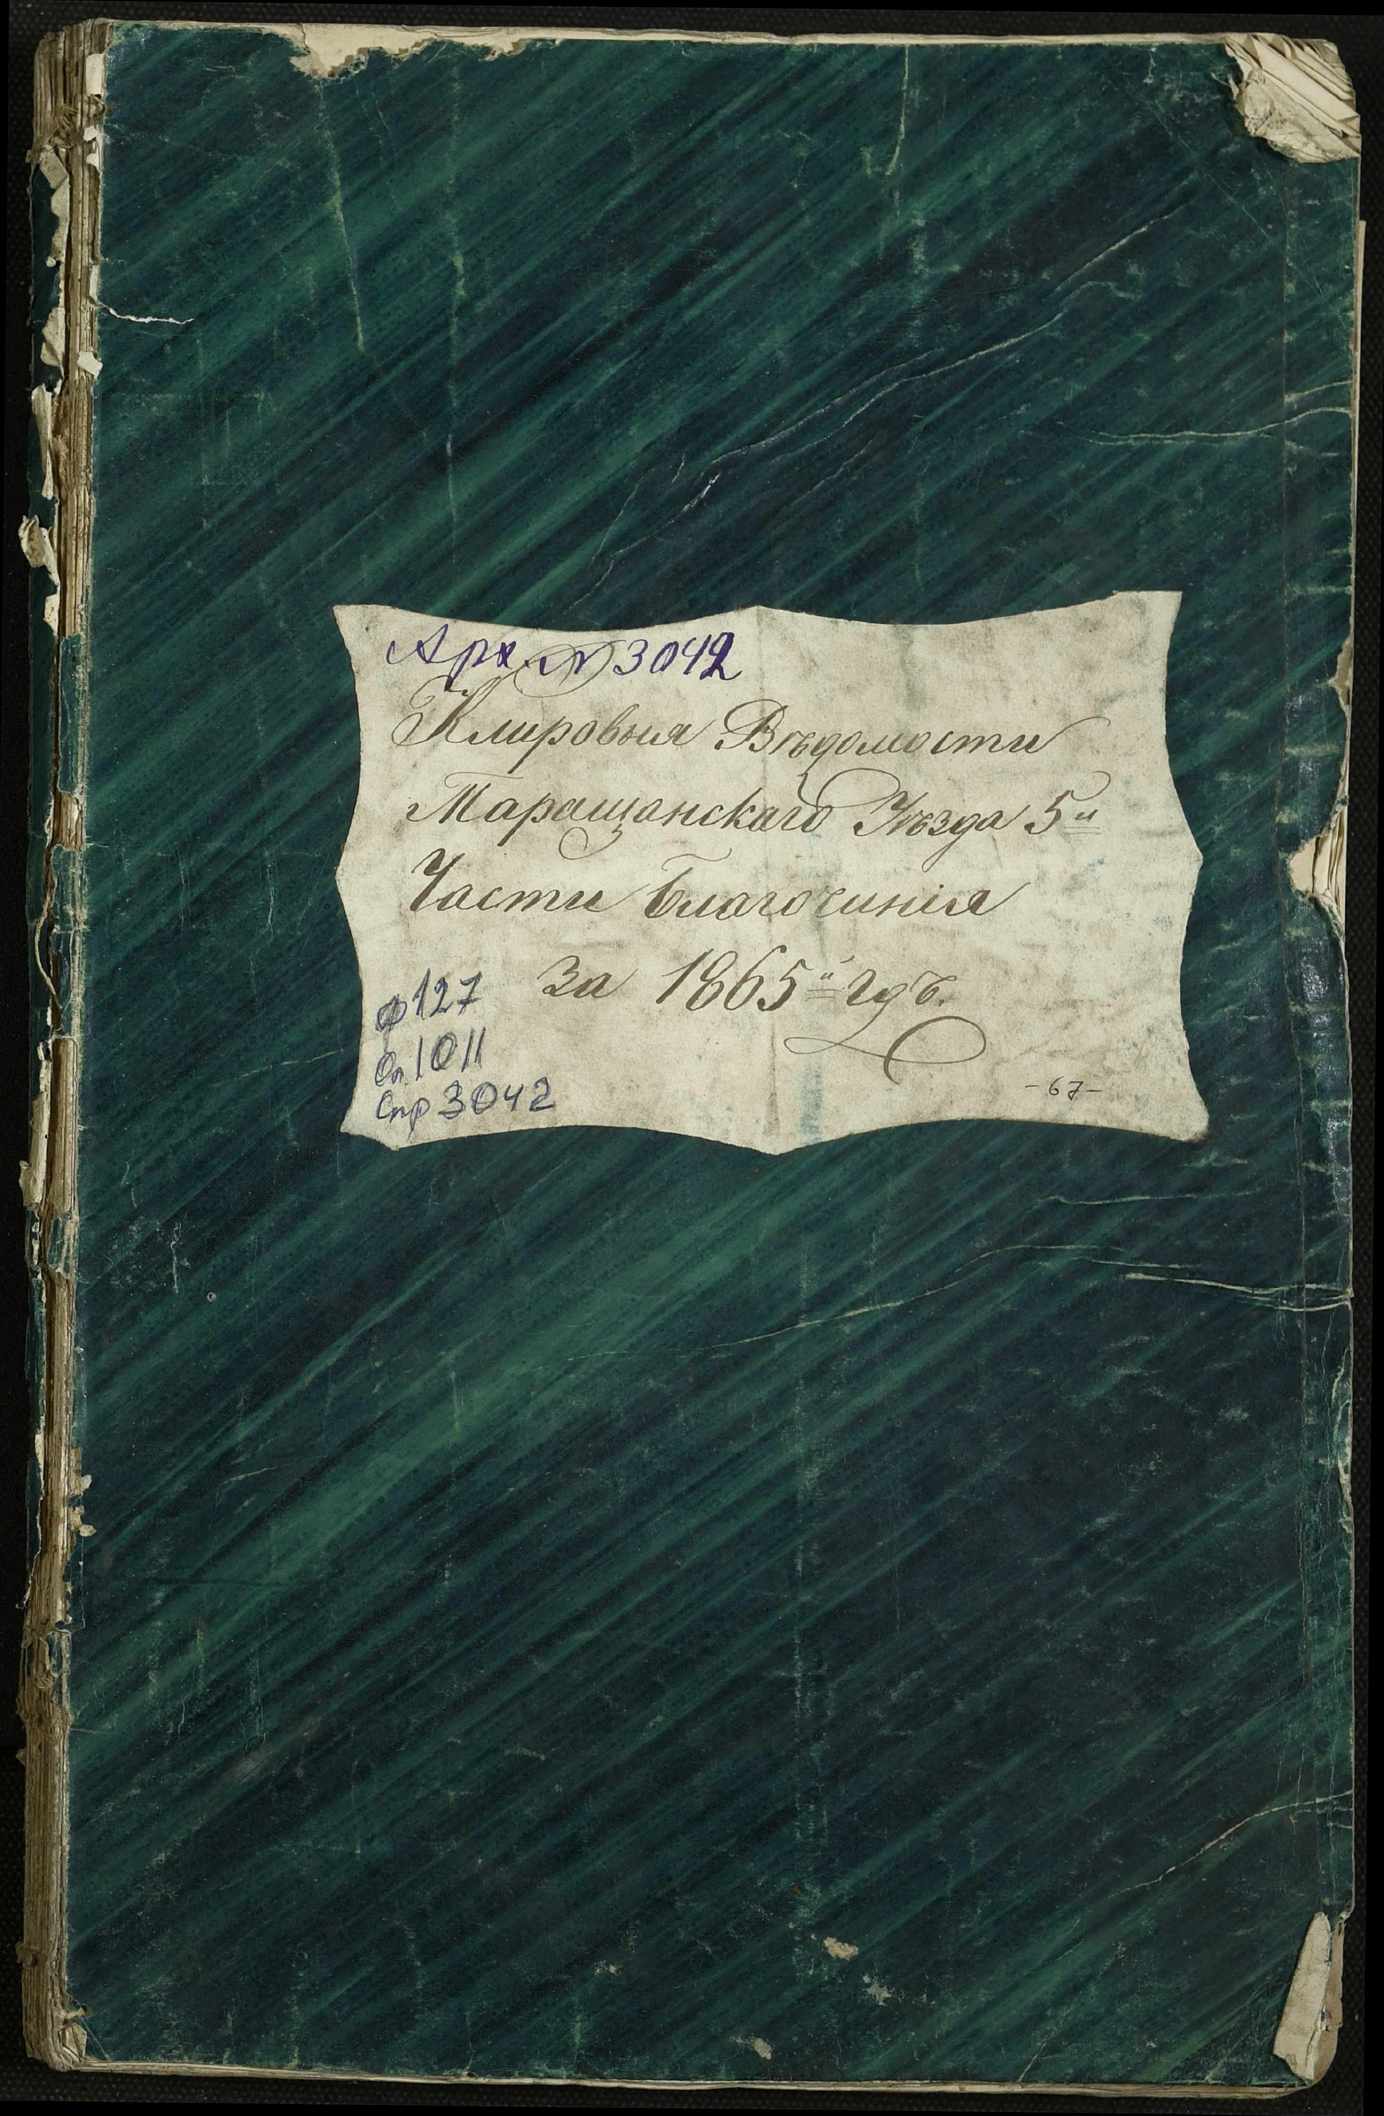 Арх. № 3042
Клировыя Вѣдомости
Таращанскаго Уѣзда 5й
Части Благочинія
за 1865й годъ.
ф 127
Оп. 1011
Спр 3042
-67-